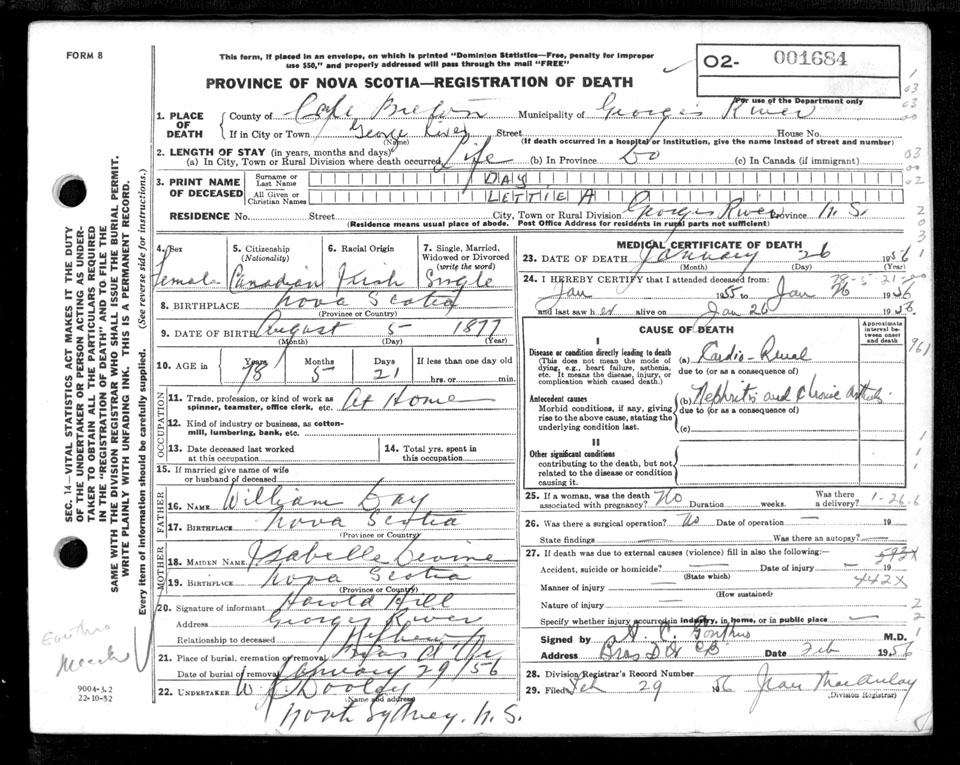 FORM 8
This form, if placed in an envelope, on which is printed "Dominion Statistics—Free, penalty for improper
use $50," and properly addressed will pass through the mail "FREE"
O2- 001684
PROVINCE OF NOVA SCOTIA—REGISTRATION OF DEATH
For use of the Department only
1. PLACE OF DEATH County of Cape Breton Municipality of Georges River
If in City or Town George River Street House No.
(Name) (If death occurred in a hospital or institution, give the name instead of street and number)
2. LENGTH OF STAY (in years, months and days)
(a) In City, Town or Rural Division where death occurred Life (b) In Province Do (c) In Canada (if immigrant)
3. PRINT NAME OF DECEASED Surname or Last Name DAY
All Given or Christian Names LETTIE A
RESIDENCE No. Street City, Town or Rural Division Georges River Province N. S.
(Residence means usual place of abode. Post Office Address for residents in rural parts not sufficient)
4. Sex Female
5. Citizenship (Nationality) Canadian
6. Racial Origin Irish
7. Single, Married, Widowed or Divorced (write the word) Single
8. BIRTHPLACE Nova Scotia
(Province or Country)
9. DATE OF BIRTH August 5 1877
(Month) (Day) (Year)
10. AGE in Years 78 Months 5 Days 21 If less than one day old
hrs. or min.
OCCUPATION
11. Trade, profession, or kind of work as spinner, teamster, office clerk, etc. At Home
12. Kind of industry or business, as cotton-mill, lumbering, bank, etc.
13. Date deceased last worked at this occupation
14. Total yrs. spent in this occupation
15. If married give name of wife or husband of deceased
FATHER
16. NAME William Day
17. BIRTHPLACE Nova Scotia
(Province or Country)
MOTHER
18. MAIDEN NAME Isabelle Devine
19. BIRTHPLACE Nova Scotia
(Province or Country)
20. Signature of informant Harold Hill
Address Georges River
Relationship to deceased Nephew
21. Place of burial, cremation or removal
Date of burial or removal January 29/56
22. UNDERTAKER W. J. Dooley
(Name and address)
North Sydney, N. S.
MEDICAL CERTIFICATE OF DEATH
23. DATE OF DEATH January 26 1956
(Month) (Day) (Year)
24. I HEREBY CERTIFY that I attended deceased from:
78-5-21
Jan 1955 to Jan 26 1956
and last saw her alive on Jan 26 1956
CAUSE OF DEATH
Approximate interval between onset and death
I
Disease or condition directly leading to death
(This does not mean the mode of dying, e.g., heart failure, asthenia, etc. It means the disease, injury, or complication which caused death.)
(a) Cardio-Renal
due to (or as a consequence of)
Antecedent causes
Morbid conditions, if any, giving rise to the above cause, stating the underlying condition last.
(b) Nephritis and Chronic
due to (or as a consequence of)
(c)
II
Other significant conditions
contributing to the death, but not related to the disease or condition causing it.
25. If a woman, was the death associated with pregnancy? No Duration weeks. Was there a delivery?
1-26-6
26. Was there a surgical operation? No Date of operation — 19
State findings Was there an autopsy? —
27. If death was due to external causes (violence) fill in also the following:—
593X
Accident, suicide or homicide? Date of injury 19
(State which)
442X
Manner of injury
(How sustained)
Nature of injury
Specify whether injury occurred in industry, in home, or in public place —
Signed by M.D.
Address Bras D'Or CB Date Feb 1956
28. Division Registrar's Record Number
29. Filed Feb 29 1956 Jean MacAulay
(Division Registrar)
SEC. 14—VITAL STATISTICS ACT MAKES IT THE DUTY
OF THE UNDERTAKER OR PERSON ACTING AS UNDER-
TAKER TO OBTAIN ALL THE PARTICULARS REQUIRED
IN THE "REGISTRATION OF DEATH" AND TO FILE THE
SAME WITH THE DIVISION REGISTRAR WHO SHALL ISSUE THE BURIAL PERMIT.
WRITE PLAINLY WITH UNFADING INK. THIS IS A PERMANENT RECORD.
Every item of information should be carefully supplied. (See reverse side for instructions.)
9004-3.2
22-10-52